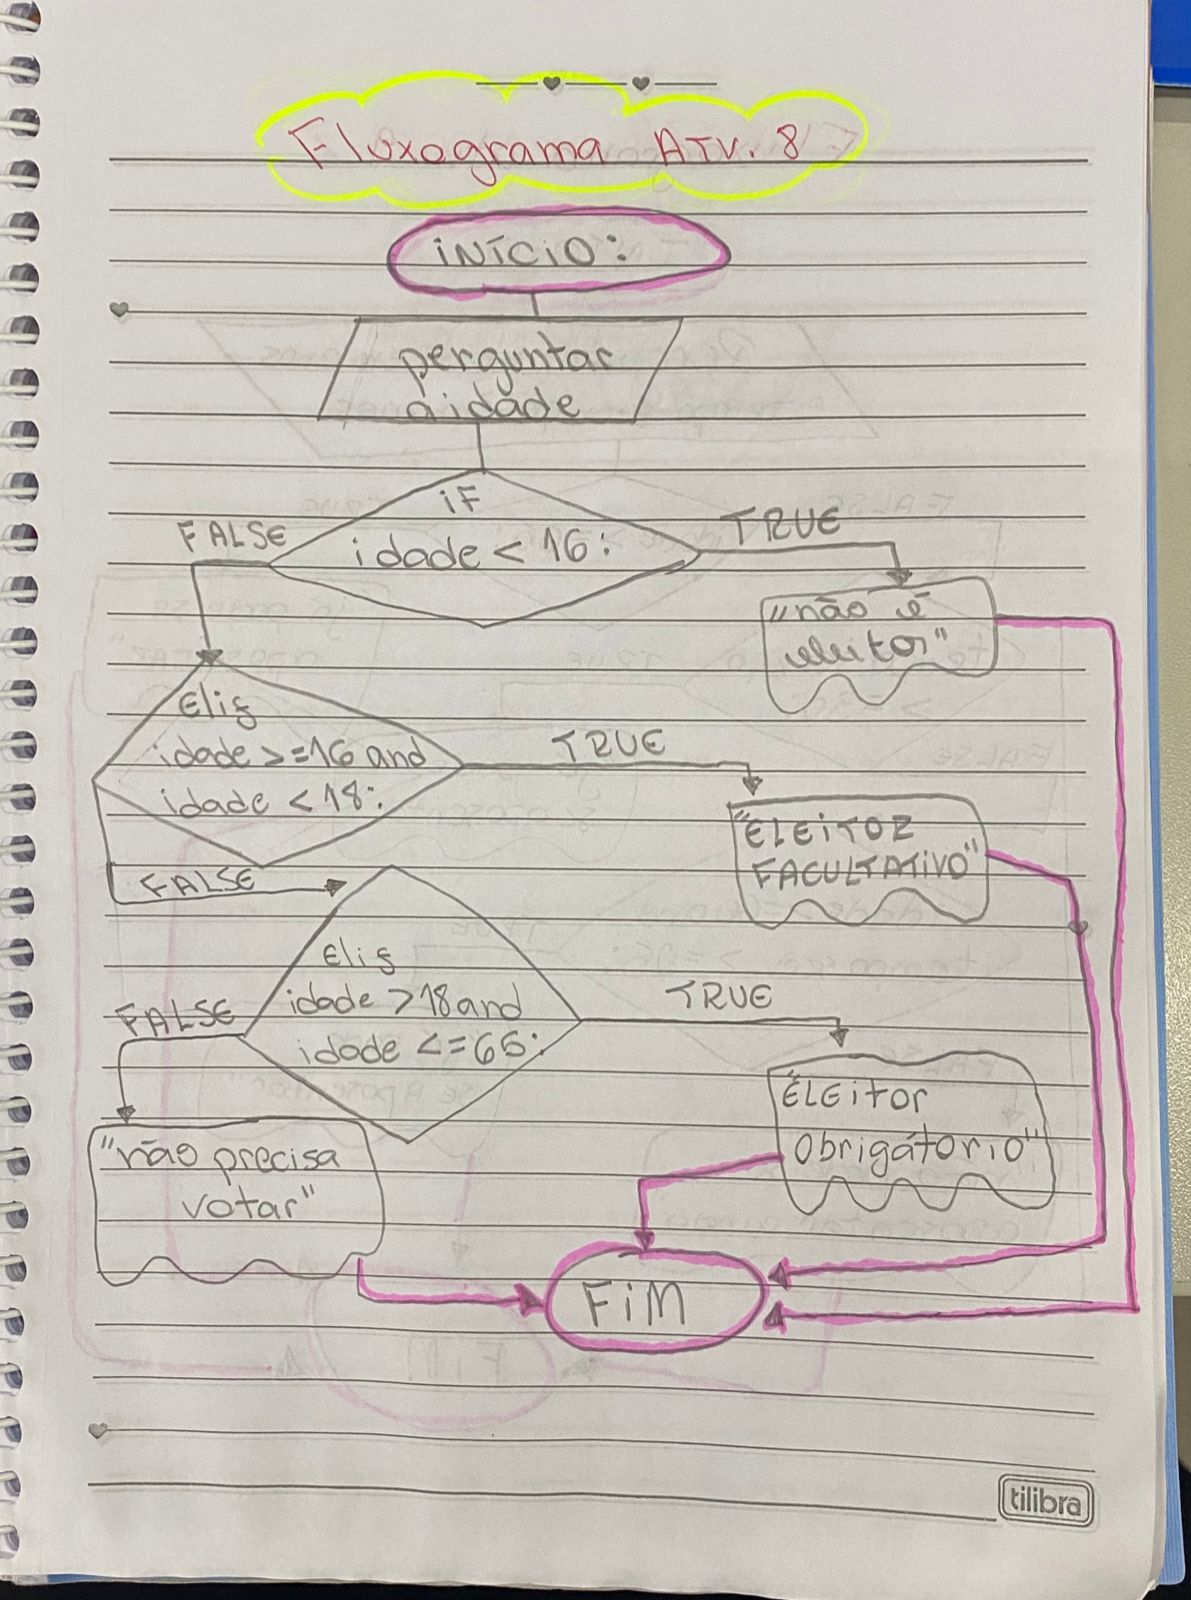 Fluxograma ATV. 8
iNÍCiO:
perguntar
a idade
iF
FALSE
idade < 16:
TRUE
"não é
eleitor"
Elif
idade >=16 and
idade < 18:
TRUE
"ELEiTOR
FACULTATiVO"
FALSE
Elif
idade >18 and
idade <=65:
FALSE
TRUE
"ELEitor
Obrigátorio"
"não precisa
votar"
FiM
tilibra